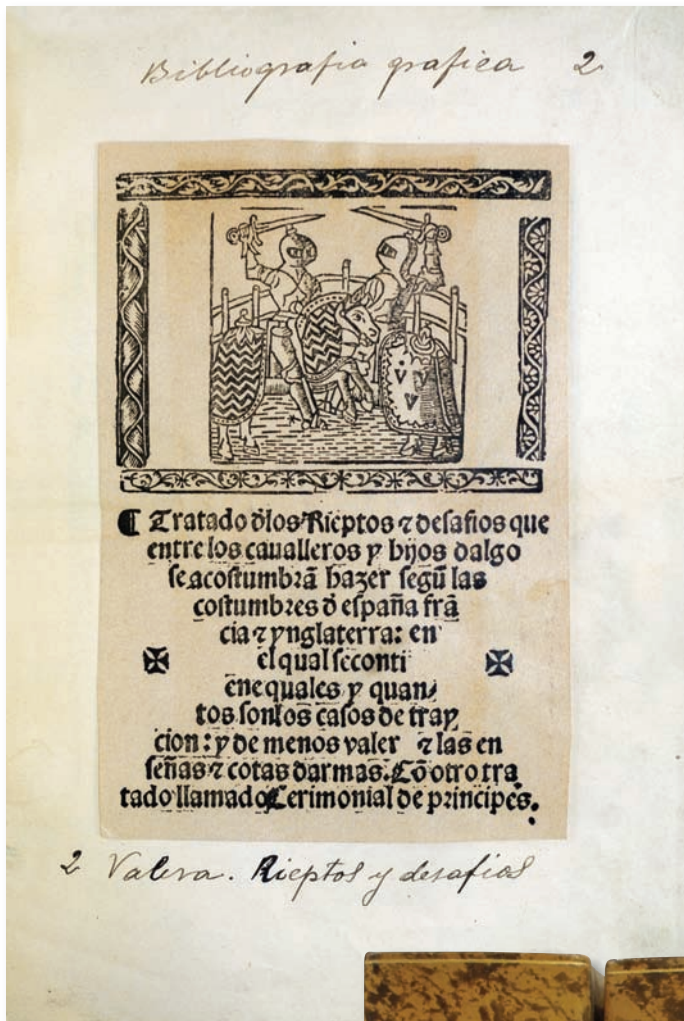 Bibliografia grafica 2
¶ Tratado dłos Rieptos ⁊ desafios que
entre los caualleros y hijos dalgo
se acostumbrã hazer segũ las
costumbres đ españa frã
cia ⁊ ynglaterra: en
el qual se conti
ene quales y quan/
tos son los casos de tray
cion: y de menos valer ⁊ las en
señas ⁊ cotas darmas. Cõ otro tra
tado llamado Cerimonial de principes.
2 Valera. Rieptos y desafios